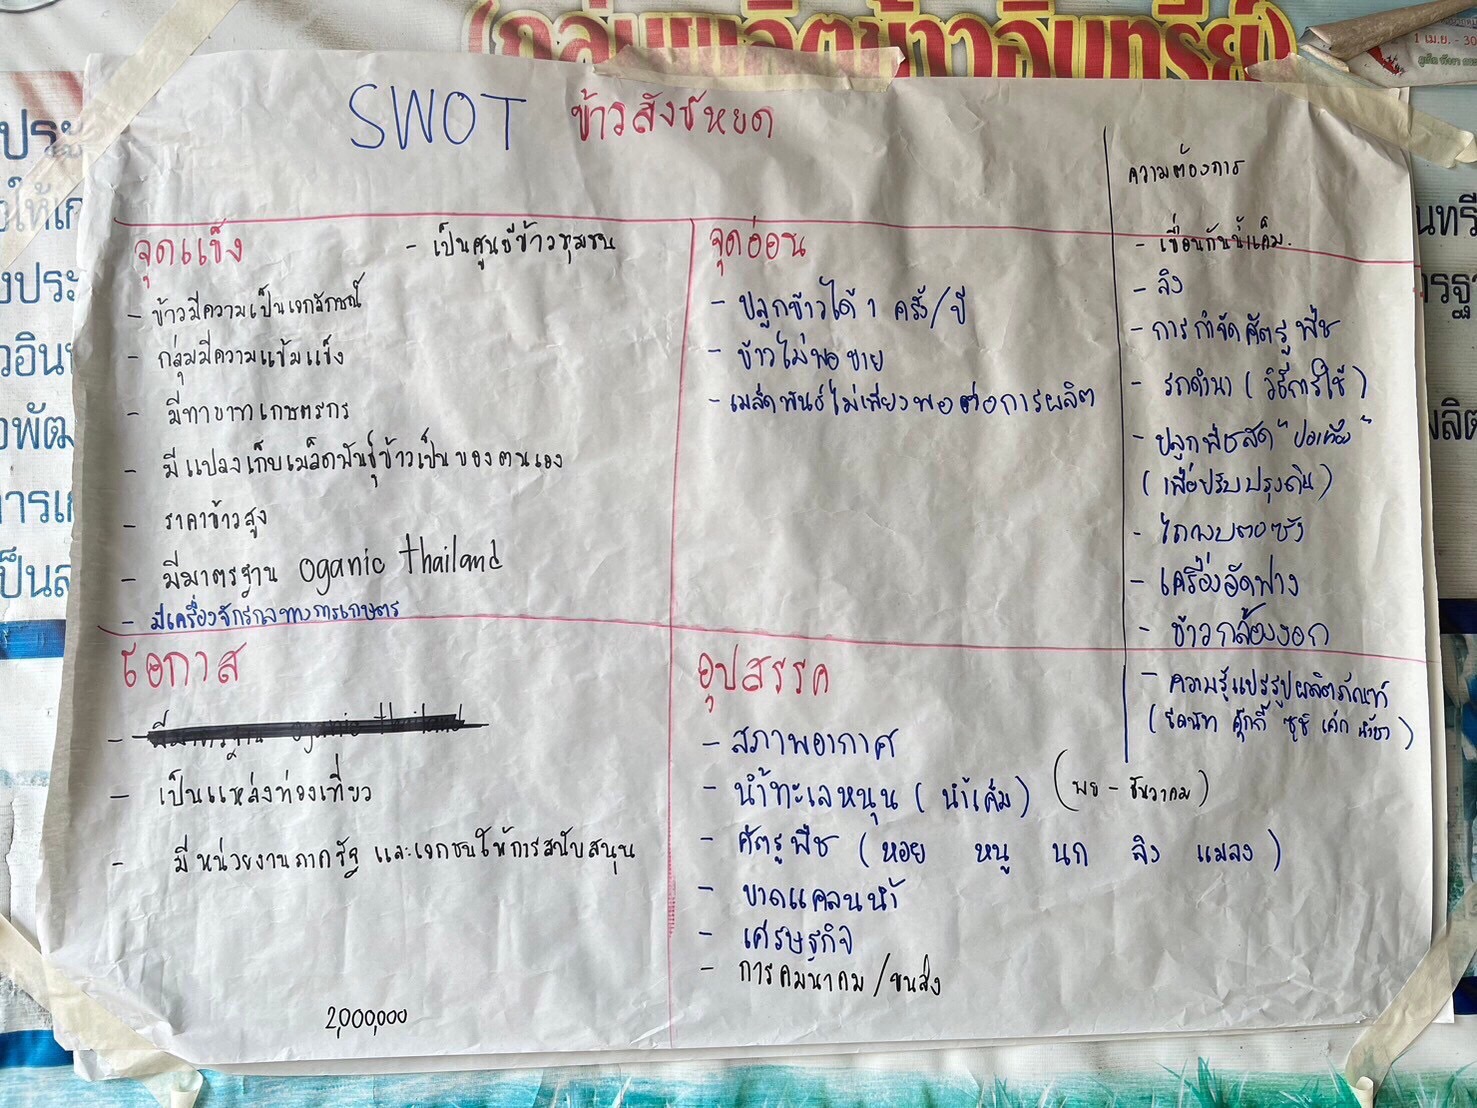 (กลุ่มผลิตข้าวอินทรีย์)
1 เม.ย. - 30
SWOT ข้าวสังข์หยด
จุดแข็ง
- เป็นศูนย์ข้าวชุมชน
- ข้าวมีความเป็นเอกลักษณ์
- กลุ่มมีความเข้มแข็ง
- มีทายาทเกษตรกร
- มีแปลงเก็บเมล็ดพันธุ์ข้าวเป็นของตนเอง
- ราคาข้าวสูง
- มีมาตรฐาน oganic thailand
- มีเครื่องจักรกลทางการเกษตร
จุดอ่อน
- ปลูกข้าวได้ 1 ครั้ง/ปี
- ข้าวไม่พอขาย
- เมล็ดพันธ์ไม่เพียงพอต่อการผลิต
โอกาส
- มีมาตรฐาน oganic thailand
- เป็นแหล่งท่องเที่ยว
- มีหน่วยงานภาครัฐ และเอกชนให้การสนับสนุน
2,000,000
อุปสรรค
- สภาพอากาศ
- น้ำทะเลหนุน (น้ำเค็ม) (พย - ธันวาคม)
- ศัตรูพืช (หอย หนู นก ลิง แมลง)
- ขาดแคลนน้ำ
- เศรษฐกิจ
- การคมนาคม/ขนส่ง
ความต้องการ
- เขื่อนกันน้ำเค็ม.
- ลิง
- การกำจัดศัตรูพืช
- รถดำนา (วิธีการใช้)
- ปลูกพืชสด "ปอเทือง"
(เพื่อปรับปรุงดิน)
- ไถกลบตอซัง
- เครื่องอัดฟาง
- ข้าวกล้องงอก
- ความรู้แปรรูปผลิตภัณฑ์
คุ๊กกี้ ซูชิ เค้ก น้ำชา)